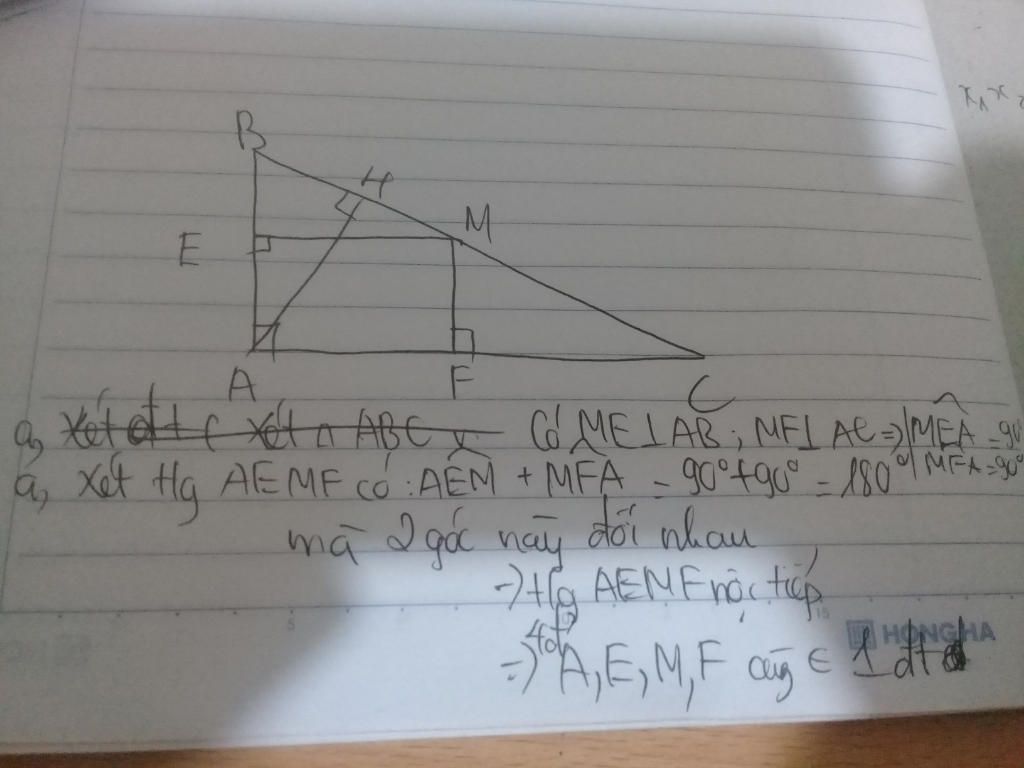 x₁ x₂
B
H
M
E
A
F
C
a, Xét đt ( xét △ ABC v Có ME⊥AB; MF⊥AC ⇒ MÊA = 90°
a, Xét Hg AEMF có: AÊM + MF̂A = 90° + 90° = 180° MF̂A = 90°
mà 2 góc này đối nhau
⇒ Hg AEMF nội tiếp
⇒ 4đ A, E, M, F cùng ∈ 1 đt
5
15
HONG HA